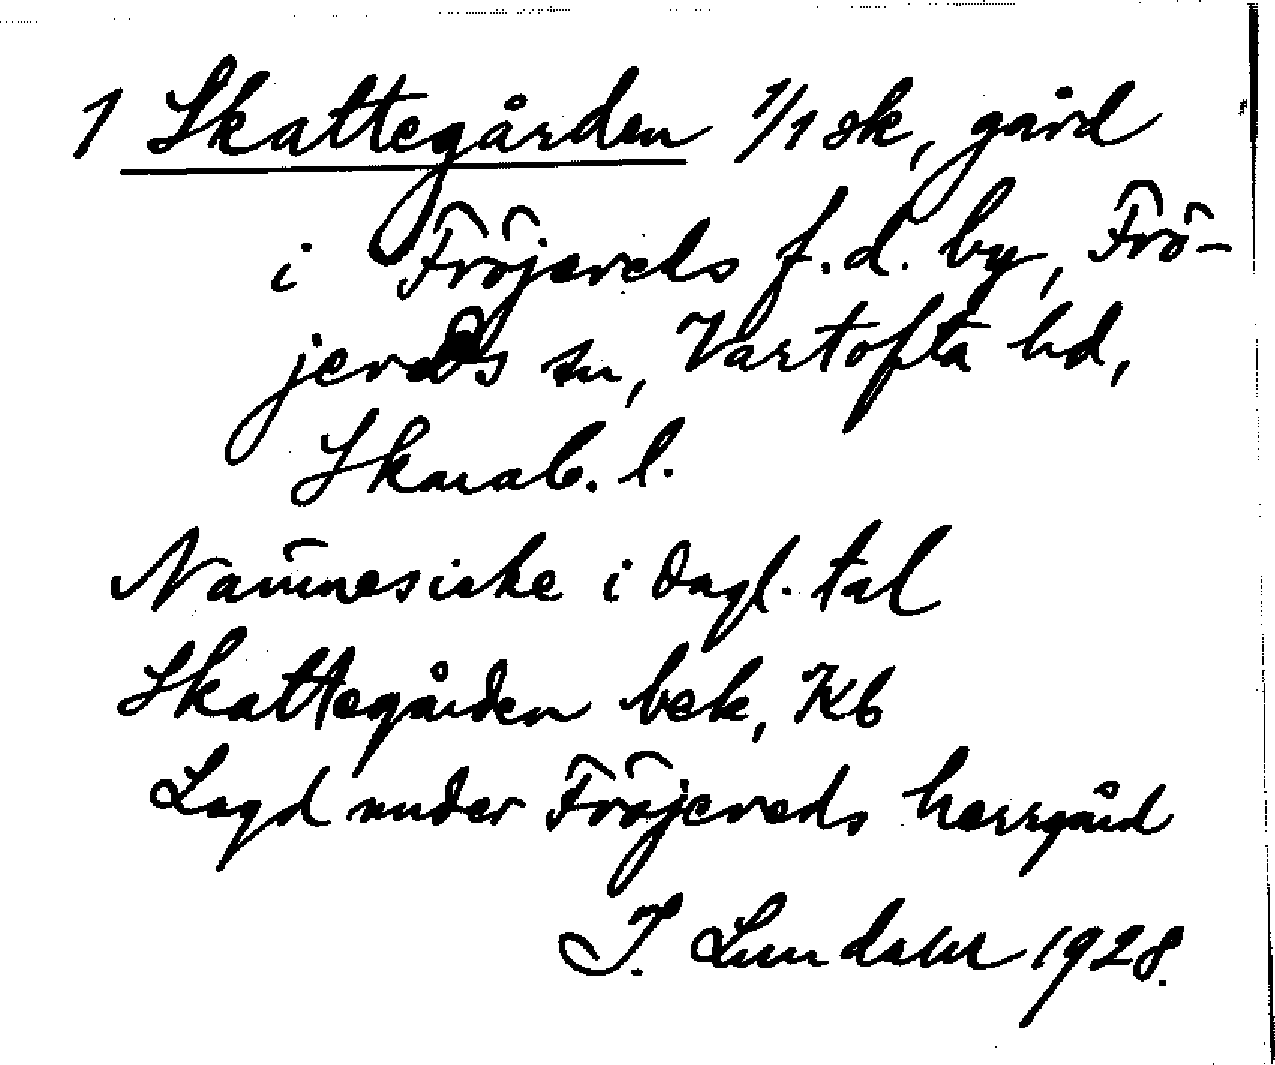 1 Skattegården 1/1 sk, gård
i Fröjereds f.d. by, Frö-
jereds sn, Vartofta hd,
Skarab. l.
Namnesiske i dagl. tal
Skattegården bek, Kb
Lagd under Fröjereds herrgård
I. Lundahl 1928.